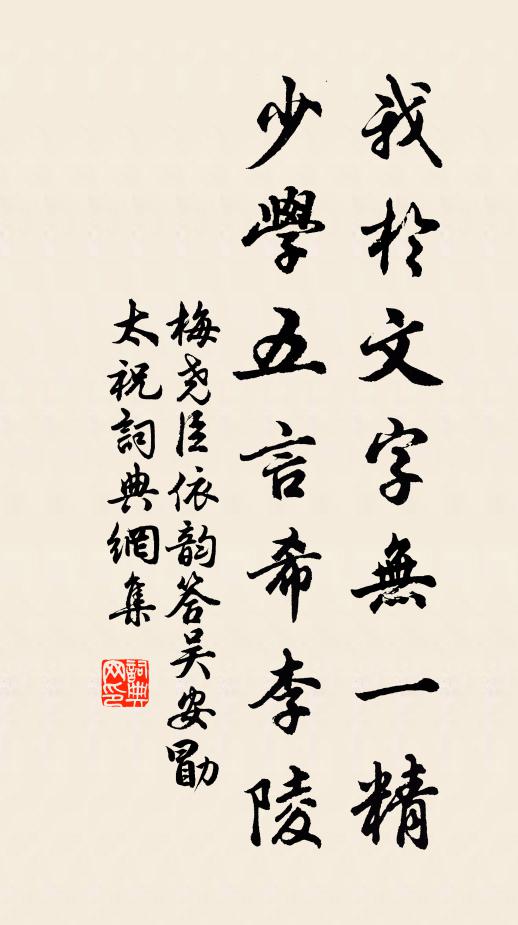 我於文字無一精
少學五言希李陵
梅堯臣依韵答吴安勖
太祝詞典網集
詞典网印